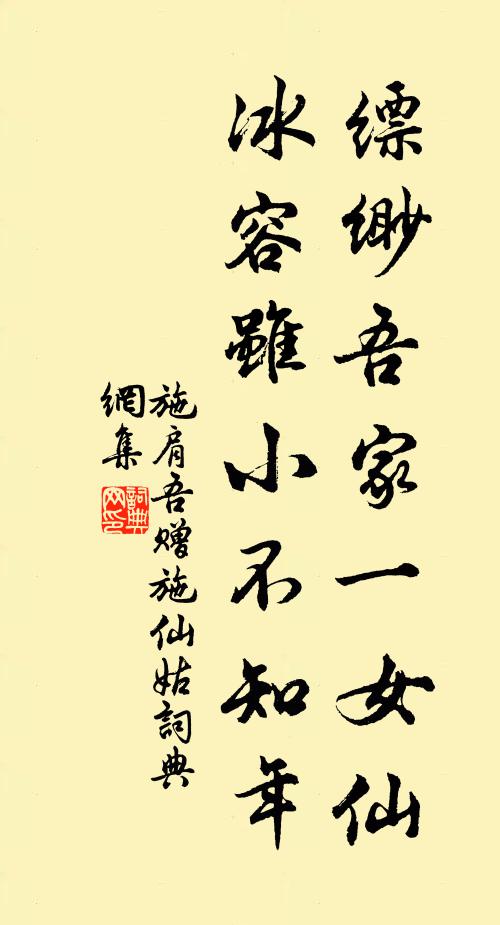 缥缈吾家一女仙
冰容雖小不知年
施肩吾赠施仙姑詞典
網集
詞典
网印